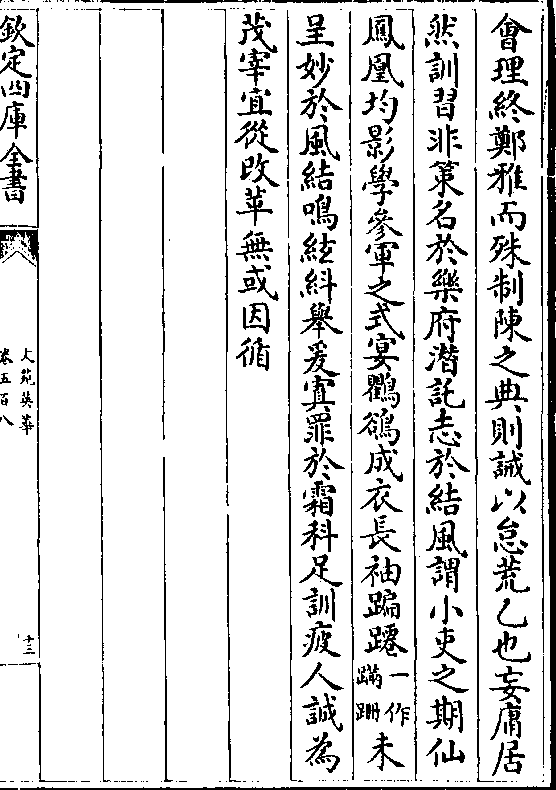 會理終鄭雅而殊制陳之典則誡以怠荒乙也妄庸居
然訓習非策名於樂府潛託志於結風謂小吏之期仙
鳳凰均影學參軍之式宴鸜鵒成衣長袖蹁躚一作蹣跚未
呈妙於風結鳴絃糾舉爰寘罪於霜科足訓疲人誠為
茂宰宜從改革無或因循
欽定四庫全書
文苑英華
卷五百八
十三